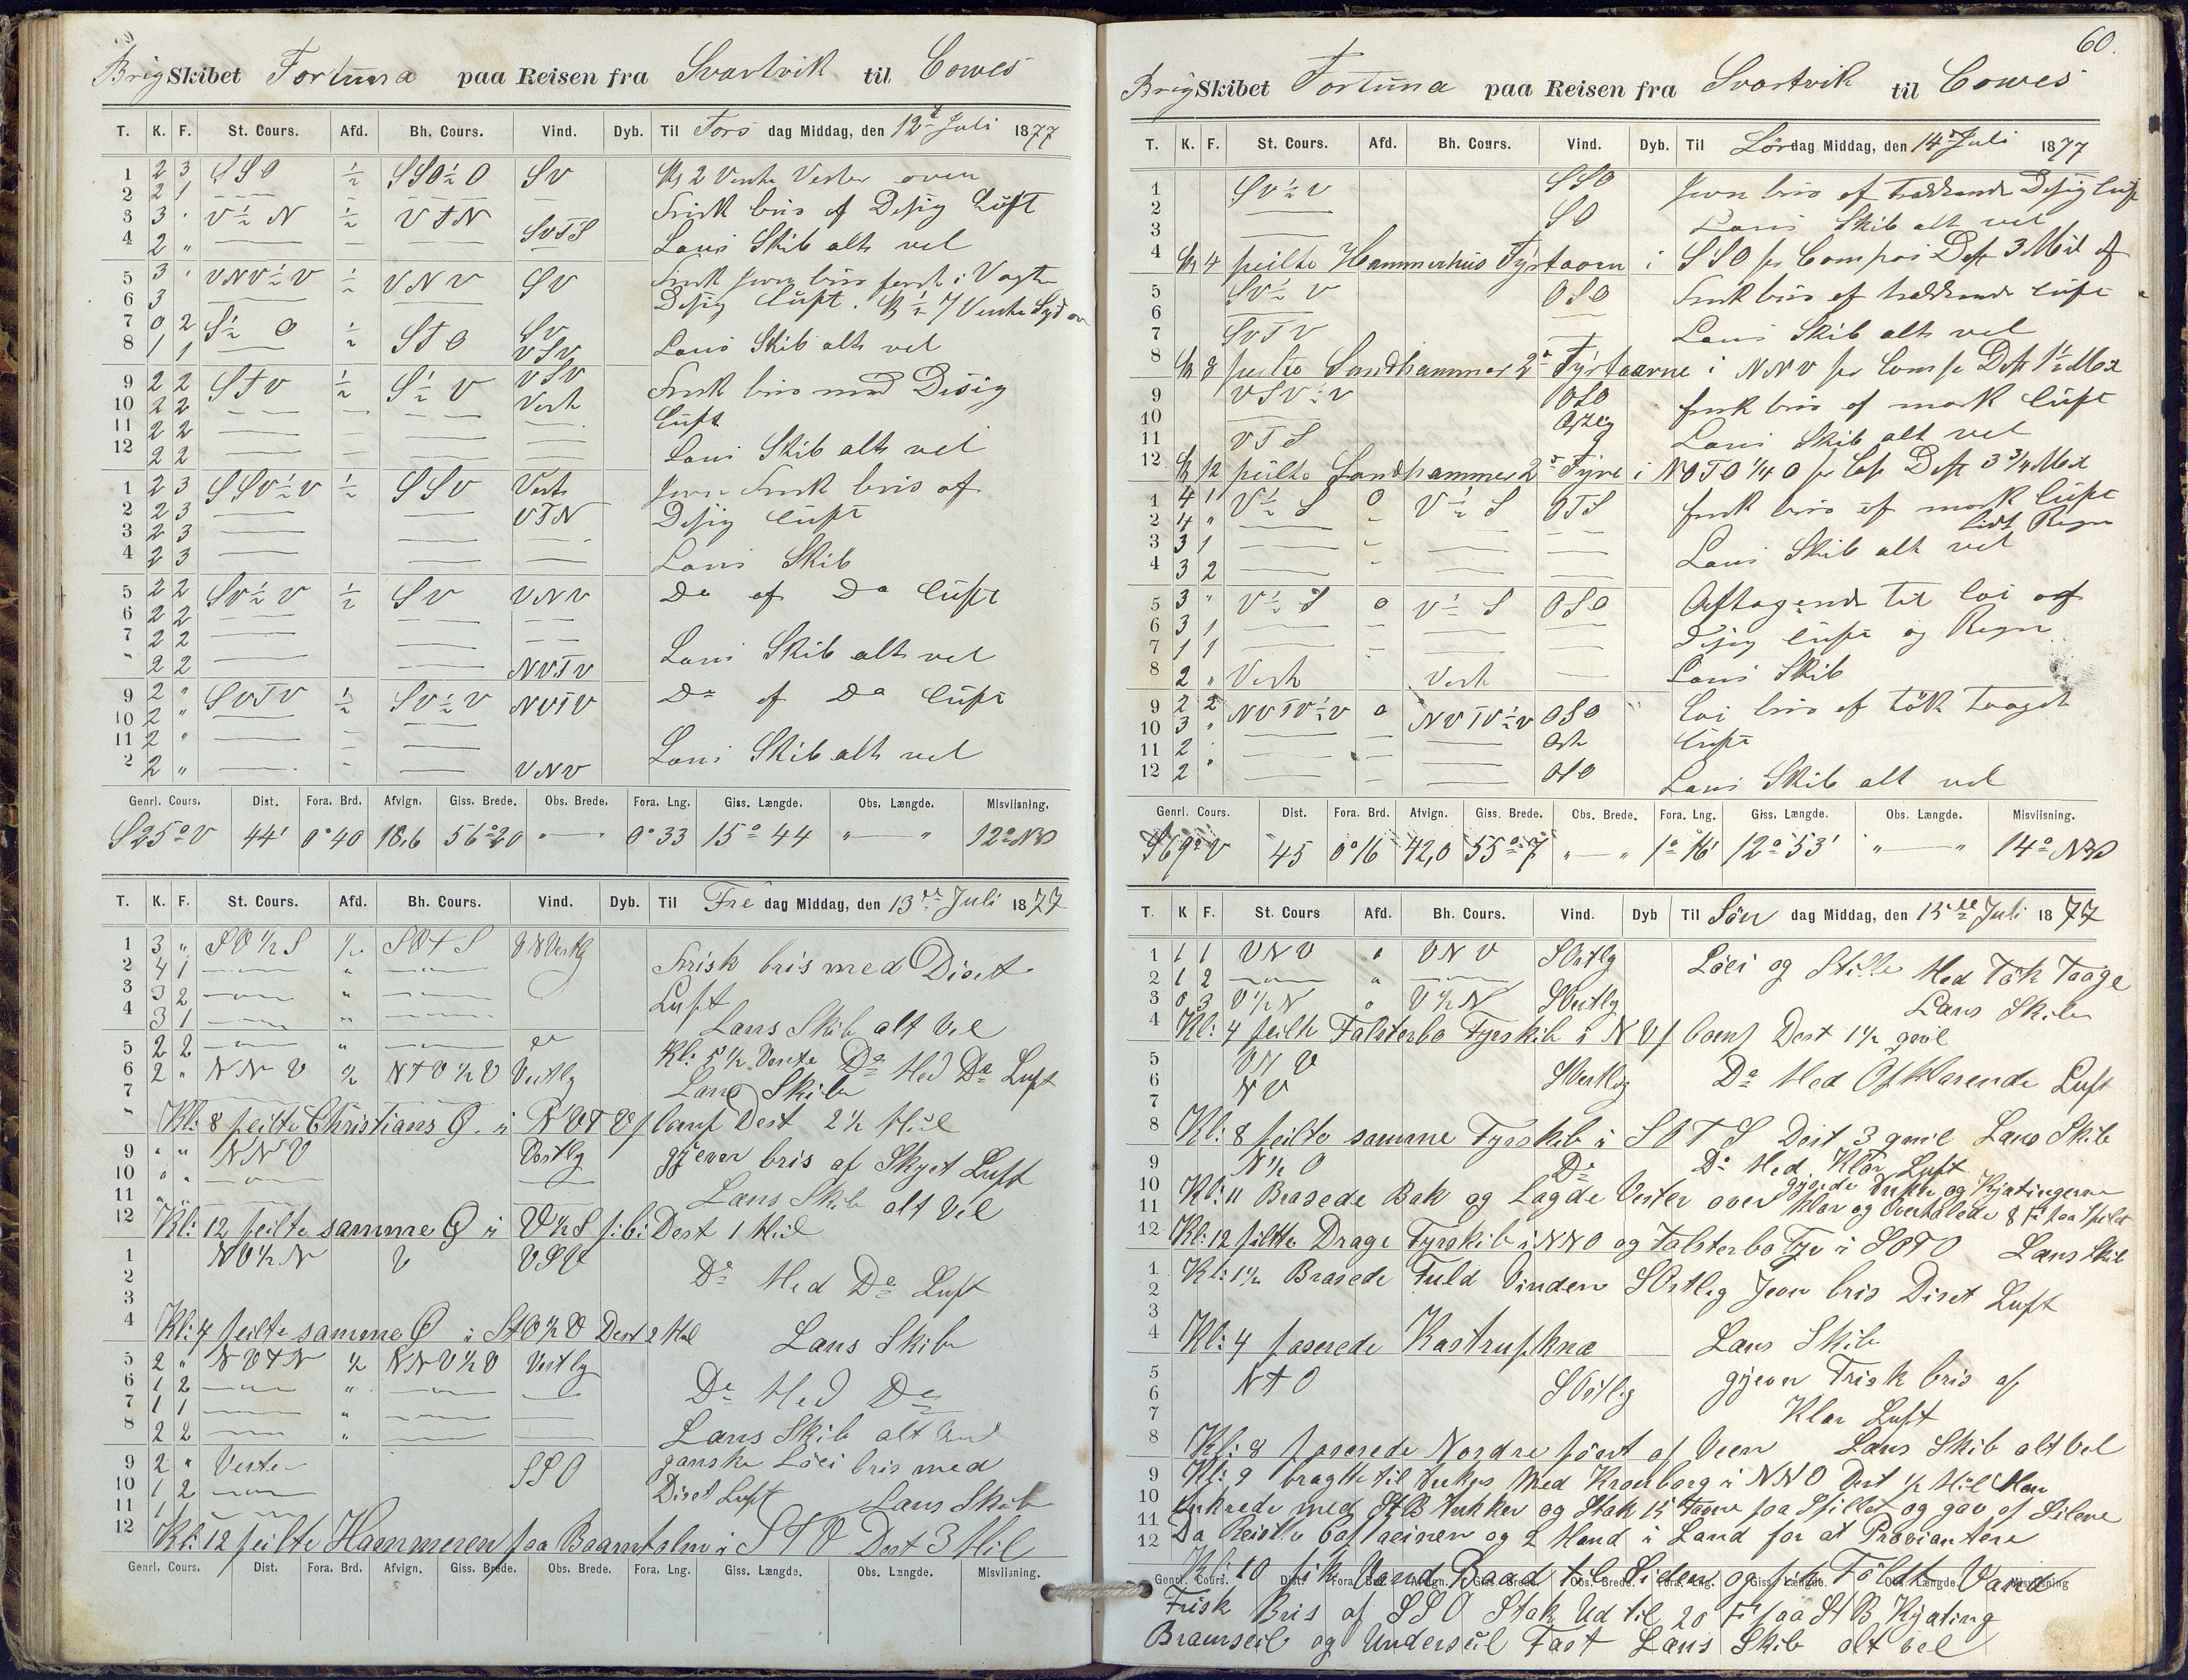 Brig Skibet Fortuna paa Reisen fra Svartvik til Cowes
T. K. F. St. Cours. Afd. Bh. Cours. Vind. Dyb. Til Tors dag Middag, den 12te Juli 1877
1 2 3 SSO ½ SSO½O SV Kl 2 Vendte Vester over
2 2 1 Frisk bris af Desig Luft
3 3 " V½N ½ VTN SVTS
4 2 " Lens Skib alt vel
5 3 " VNV½V ½ VNV SV
6 3 Desig Luft. Kl ½7 Vendte Syd over
7 0 2 S½O ½ STO SV
8 1 1 VSV Lens Skib alt vel
9 2 2 STV ½ S½V VSV Frisk bris med Desig
10 2 2 Vest Luft
11 2 2
12 2 2 Lens Skib alt vel
1 2 3 SSV½V ½ SSV Vest Jevn Frisk bris af
2 2 3 VTN Desig Luft
3 2 3
4 2 3 Lens Skib
5 2 2 SV½V ½ SV VNV Do af Do Luft
6 2 2
7 2 2 Lens Skib alt vel
" 2 2 NVTV
9 2 " SVTV ½ SV½V NVTV Do af Do Luft
10 2 "
11 2 " Lens Skib alt vel
2 2 " VNV
Genrl. Cours. Dist. Fora. Brd. Afvign. Giss. Brede. Obs. Brede. Fora. Lng. Giss. Længde. Obs. Længde. Misviisning.
S25°V 44' 0°40 18,6 56°20 "—" 0°33 15°44 "—" 12°NV
T. K. F. St. Cours. Afd. Bh. Cours. Vind. Dyb. Til Fre dag Middag, den 13de Juli 1877
1 3 " SV½S ½ SVTS VNVestlig
2 4 1 " Frisk bris med Diset
3 3 2 " Luft
4 3 1 " Lans Skib alt Vel
5 2 2 " Kl: 5½ Vente Do Med Do Luft
6 2 " NNV ½ NTV½V Vestlig Lans Skib
7
" Kl: 8 peilte Christians Ø. i NVTV p Comp Dest 2½ Miil
9 " " NNV Vestlig gjevn bris af Skyet Luft
10 " "
11 " " Lans Skib alt Vel
12 Kl: 12 peilte samme Ø i V½S p: Dest 1 Miil
1 NV½N V VSV
2 Do Med Do Luft
3
4 Kl: 4 peilte samme Ø i StO½O Dest 2 Mil Lans Skib
5 2 " NVTN ½ NNV½V Vestlig
6 1 2 " Do Med Do
7 1 1 "
8 2 2 " Lans Skib alt Vel
9 2 " Vester SSO ganske Löei bris med
10 1 2 Diset Luft
11 1 1 Lans Skib
12 Kl: 12 peilte Hammeren paa Baarnholm i STO Dest 3 Mil
Genrl. Cours. Dist. Fora. Brd. Afvign. Giss. Brede. Obs. Brede. Fora. Lng. Giss. Længde. Obs. Længde. Misviisning.
60.
Brig Skibet Fortuna paa Reisen fra Svartvik til Cowes
T. K. F. St. Cours. Afd. Bh. Cours. Vind. Dyb. Til Lör dag Middag, den 14de Juli 1877
1 SV½V SSO Jevn bris af trækkende Desig Luft
2
3 SO Lens Skib alt vel
4 Kl 4 peilte Hammerhus Fyrtaarn i SSO pr Compas Dest 3 Mil af
5 SV½V OSO Frisk bris af trækkende Luft
6
7 SVTV Lens Skib alt vel
8 Kl 8 peilte Sandhammer 2de Fyrtaarne i NNV pr Comps Dest 1½ Mil
9 VSV½V OSO frisk bris af mørk Luft
10 Østlig
11 VTS Lens Skib alt vel
12 Kl 12 peilte Sandhammer 2de Fyre i NOTO¼O pr Cps Dest 3¾ Mil
1 4 1 V½S 0 V½S OTS frisk bris af mørk Luft
2 4 " lidt Regn
3 3 1 Lens Skib alt vel
4 3 2
5 3 " V½S 0 V½S OSO Aftagende til löi og
6 3 1 Desig Luft og Regn
7 1 1
8 2 " Vest Vest Lens Skib
9 2 2 NVTV½V 0 NVTV½V OSO Löi bris af tök taaget
10 3 " Ost Luft
11 2 "
12 2 " OSO Lens Skib alt vel
Genrl. Cours. Dist. Fora. Brd. Afvign. Giss. Brede. Obs. Brede. Fora. Lng. Giss. Længde. Obs. Længde. Misviisning.
S69°V 45 0°16 42,0 55°7 "—" 1°16' 12°53' "—" 14°NV
T. K F. St. Cours Afd. Bh. Cours. Vind. Dyb Til Sön dag Middag, den 15de Juli 1877
1 1 1 VNV " VNV SOstlig Löei og Stille Med Tök Taage
2 1 2 "
3 0 3 V½N 0 V½N SVestlig Lans Skib
4 Kl: 4 peilte Falsterbo Fyrskib i NV p Comp Dest 1½ qmil
5 VNV
6 NV SVestlig Do Med Opklarende Luft
7
8 Kl: 8 peilte samme Fyrskib i SOTS Dest 3 qmil Lans Skib
9 N½O Do Do Med Klar Luft
10 Kl: 11 Brasede Bak og Lagde Vester over gjorde Anker og Kjætingerne
11 Klar og Overhalede 8 F: paa Spilet
12 Kl: 12 piltte Drage Fyrskib i NNO og Falsterbo Fyr i SOTO Lans Skib
1 Kl: 1½ Brasede Fuld Vinden SOstlig Jevn bris Diset Luft
2
3
4 Kl: 4 paserede Kastrup Knæ Lans Skib
5 NTO SOstlig gjevn Frisk bris af
6
7 Klar Luft
8 Kl: 8 paserede Nordre pönt af Veen Lans Skib alt Vel
9 Kl: 9 bragtte til Ankers Med Kronborg i NNO Dest ½ Mil Man
10 Ankrede med StB Anker og Stak 15 Favne paa Spillet og gav af Silene
11 Da Reiste Captaeinen og 2 Mand i Land for at Proviantere
12
Kl: 10 fik Vand Baad til Siden og fik Földt Vand
Genrl. Cours. Dist. Fora. Brd. Afvign. Giss. Brede. Obs. Brede. Fora. Lng. Giss. Længde. Obs. Længde. Misviisning
Frisk Bris af SSO Stak Ud til 20 F: paa StB Kjæting
Bramseil og Underseil Fast Lans Skib alt vel